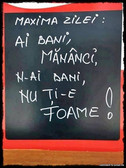 MAXIMA ZILEI:
AI BANI,
MĂNÂNCI,
N-AI BANI,
NU ȚI-E
FOAME!